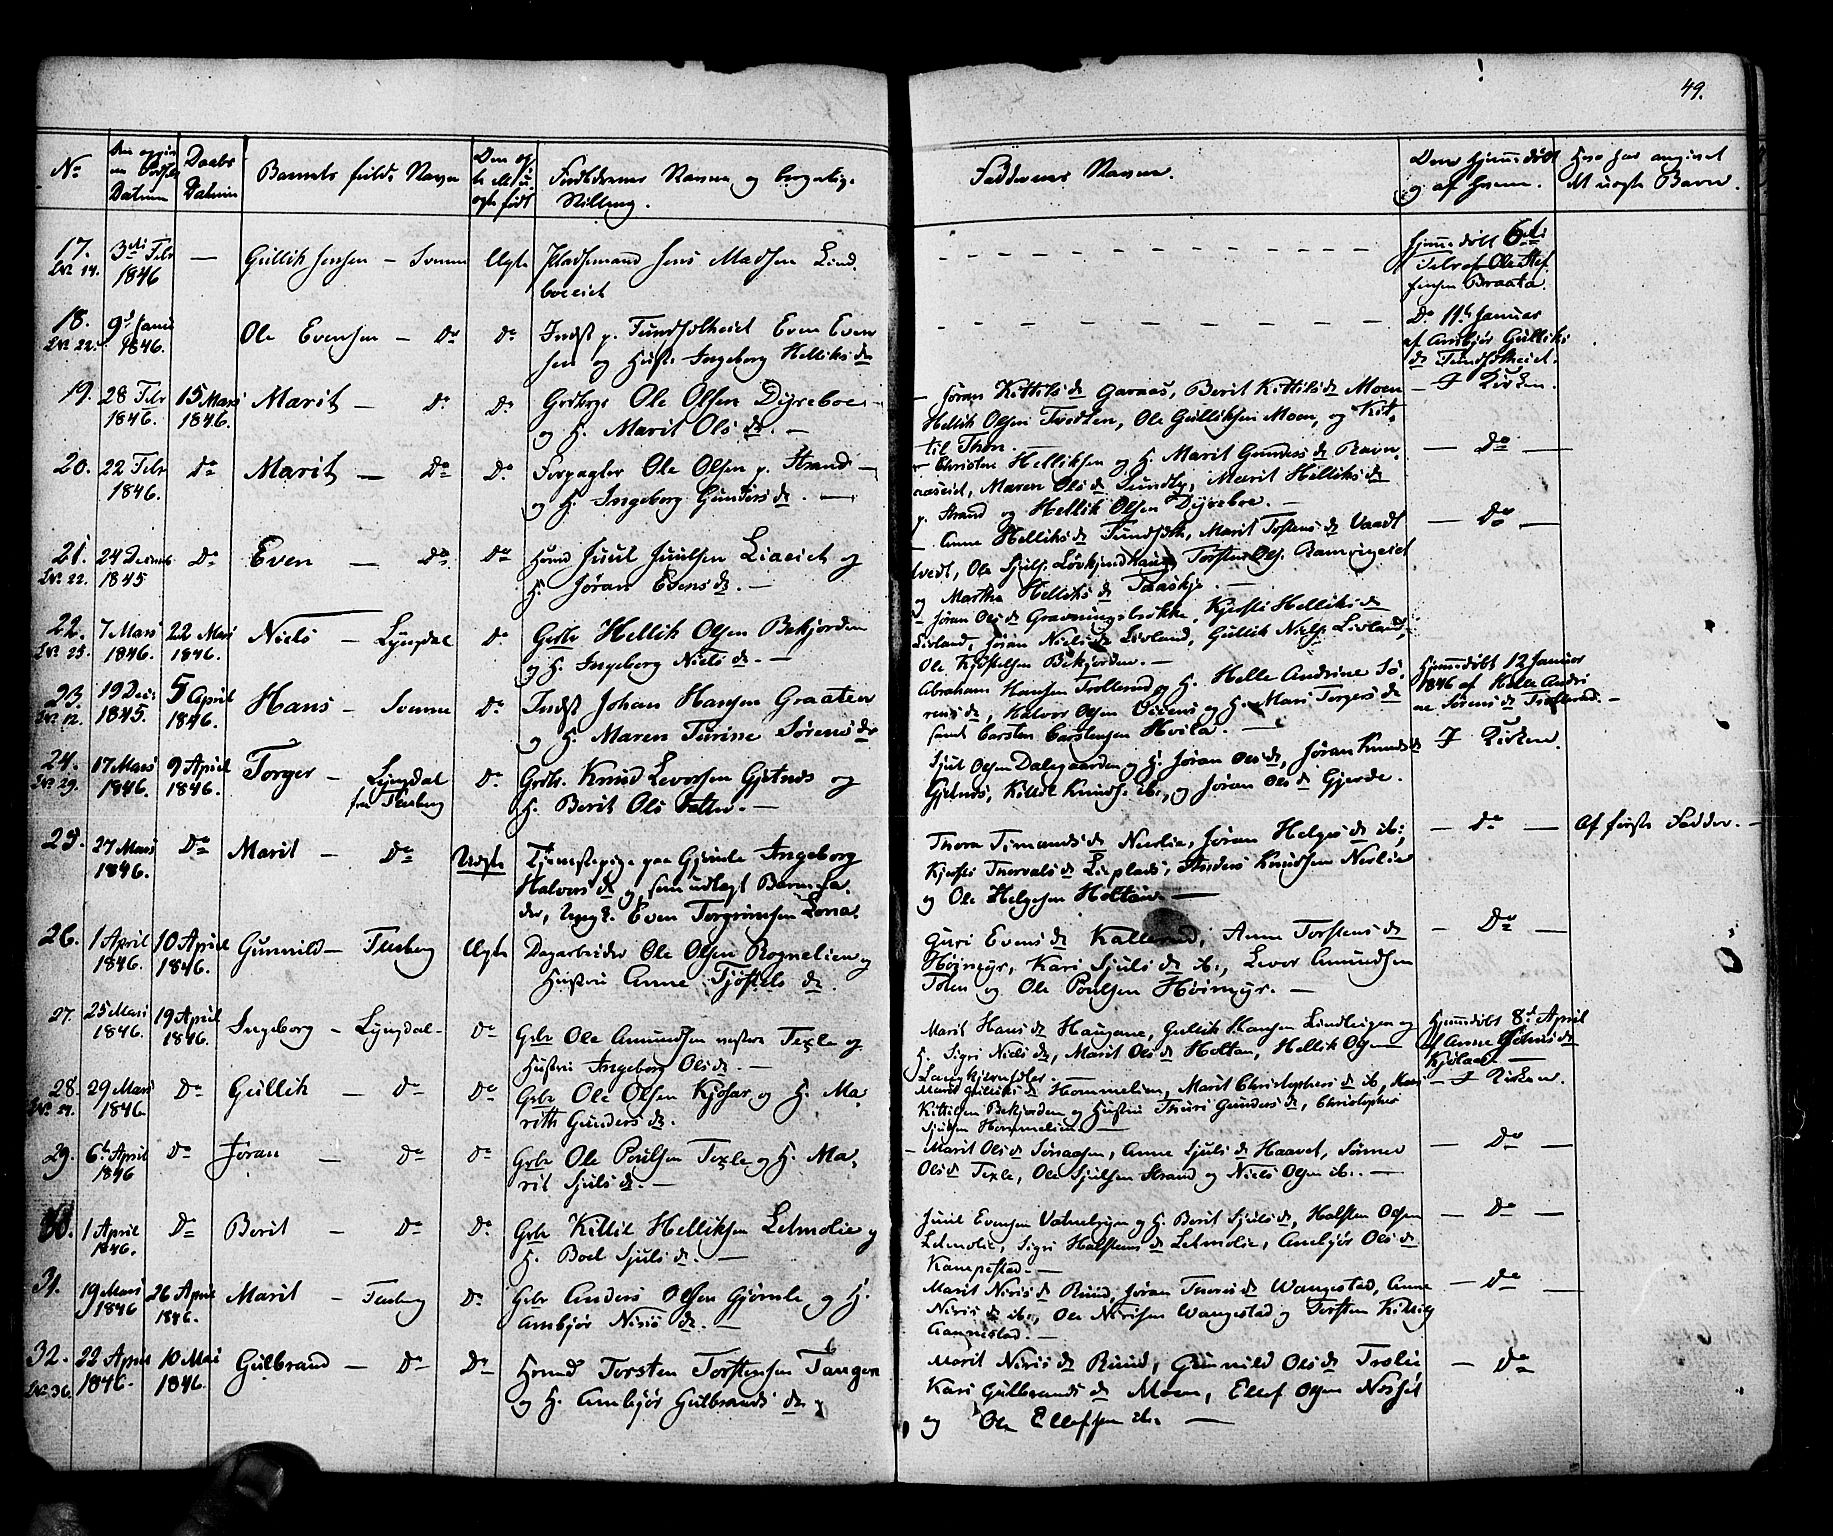 49.
No
Datum
Daabs
Datum
Barnets fulde Navn
Den og
ogte født
Forældrenes Navne og borgerlige
Stilling.
Faddernes Navne.
Den hjemmedøbt
og af hvem.
Hvo har angivet
det uægte Barn.
17.
3die Febr
1846
—
Gullik Jensen – Svenne
Ægte
Pladsemand Jens Madsen Lind
boeeiet
hjemmedøbt 6te
Febr af Ole Stef
fensen Braata.
18.
9d Janu
1846.
Ole Evensen – Do
Do
Indst p. Fundsølheiet Even Even
sen og Hustr Ingeborg Helliks d.
Do 11th Januar
af Ambjør Gulliks
d. Fundsølheiet.
19.
28 Febr
1846.
15 Mars
1846.
Marit – Do
Do
Grdbr Ole Olsen Dyreboe –
og H. Marit Ols d. –
Jøran Kittils d. Garaas, Berit Kittils d. Moen
Hellik Olsen Tvedten, Ole Gulliksen Moen, og Kit-
til Thon.
– I Kirken.
20.
22 Febr
1846.
Do
Marit – Do
Do
Forpagter Ole Olsen p. Strand –
og H. Ingeborg Gunders d. –
Christen Helliksen og H. Marit Gunders d. Ravn
aaseiet, Maren Ols d. Sundby, Marit Helliks d.
p. Strand og Hellik Olsen Dyreboe. –
– Do –
21.
24 Decemb
1845
Do
Even – Do
Do
Huusm Juul Juulsen Liaeiet og
H. Jøran Evens d. –
Anne Helliks d. Fundsølh, Marit Torstens d. Vaadt
tvedt, Ole Sjuls. Løvkjendhaug Torsten Ols.
og Martha Helliks d. Taaskje. –
– Do –
22.
7 Mars
1846.
22 Mars
1846.
Niels – Lyngdal
Do
Grdbr Hellik Olsen Bekjorden
og H. Ingeborg Niels d. –
Jøran Ols d. Gravningsbakke, Kjersti Helliks d.
Livland, Jøran Niels d. Livland, Gullik Niels. Livland,
Ole Kjøstelsen Bekjorden. –
23.
19 Decr
1845.
5 April
1846.
Hans – Svenne
Do
Indst Johan Hansen Graaten
og H. Maren Turine Sørens d.
Abraham Hansen Trollerud og H. Helle Andrine Sø-
rens d., Halvor Olsen Vivens og H. Mari Torgers d.
samt Carsten Carstensen Hvila. –
Hjemmedøbt 12 Januar
1846 af Helle Andri
ne Sørens d. Trollerud. –
24.
17 Mars
1846.
9 April
1846.
Torger – Lyngdal
fra Flesberg
Do
Grdbr. Knud Levorsen Gjetnes og
H. Berit Ols Datter. –
Sjul Olsen Dalegaarden og H. Jøran Ols d., Jøran Knuds d.
Gjetnes, Kittil Knuds. ib., og Jøran Ols d. Gjerde.
I Kirken.
25.
27 Mars
1846.
Do
Marit – Do
Uægte
Tjenestepige paa Gjømle Ingeborg
Halvors d. og som udlagt Barnefa-
der, Ungk. Even Torgrimsen Lona.
Thora Timands d. Nerlia, Jøran Helges d. ib.,
Kjersti Thorvals d. Liplads, Anders Knudsen Nerlia
og Ole Helgesen Holtan. –
– Do –
Af første Fadder. –
26.
1 April
1846.
10 April
1846.
Gunnild – Flesberg
Ægte
Dagarbeider Ole Olsen Rognelien og
Hustru Anne Tjøstels d.
Guri Evens d. Kallerud, Anne Torstens d.
Høimyr, Kari Sjuls d. ib., Levor Amundsen
Toen og Ole Poulsen Høimyr. –
– Do –
27.
25 Mars
1846.
19 April
1846.
Ingeborg – Lyngdal –
Do
Grbr Ole Amundsen nestre Texle og
Hustru Ingeborg Ols d. –
Marit Hans d. Haugane, Gullik Hansen Lindheigen og
H. Sigri Niels d., Marit Ols d. Holtan, Hellik Olsen
Langkjernsdler
Hjemmedøbt 8d April
af Anne
28.
29 Mars
1846.
Do
Gullik – Do
Do
Grbr Ole Olsen Kjosar og H. Ma
rith Gunders d.
Marit Gulliks d. Hommelien, Marit Christophers d. ib,
Kittilsen Bekjorden og Hustru Thuri Gunders d., Christopher
Sjulsen Hommelien –
– I Kirken.
29.
6te April
1846
Do
Jøran – Do
Do
Grbr Ole Poulsen Texle og H. Ma,
rit Sjuls d. –
Marit Ols d. Sønaasen, Anne Sjuls d. Haavet, Sønnev
Ols d. Texle, Ole Sjulsen Strand og Niels Olsen ib. –
– Do –
30.
1 April
1846.
Do
Berit – Do
Do
Grbr Kittil Helliksen Letmolie og
H. Boel Sjuls d. –
Juul Evensen Vatnebryn og H. Berit Sjuls d., Halsten Olsen
Letmolie, Sigri Halstens d. Letmolie, Ambjør Ols d.
Kampestad. –
– Do –
31.
19 Mars
1846
26 April
1846.
Marit – Flesberg
Do
Grbr Anders Olsen Gjømle og H.
Ambjør Niris d. –
Marit Niris d. Ruud, Jøran Thores d. Wangestad, Anne
Niris d. ib., Ole Nirisen Wangestad og Torsten Kittils
Aannestad. –
– Do –
32.
22 April
1846.
10 Mai
1846.
Gulbrand – Do
Do
Huusm Torsten Torstensen Tangen
og H. Ambjør Gulbrands d.
Marit Niris d. Ruud, Gunnild Ols d. Trolie
Kari Gulbrands d. Moen, Ellef Olsen
og Ole Ellefsen ib. –
– Do